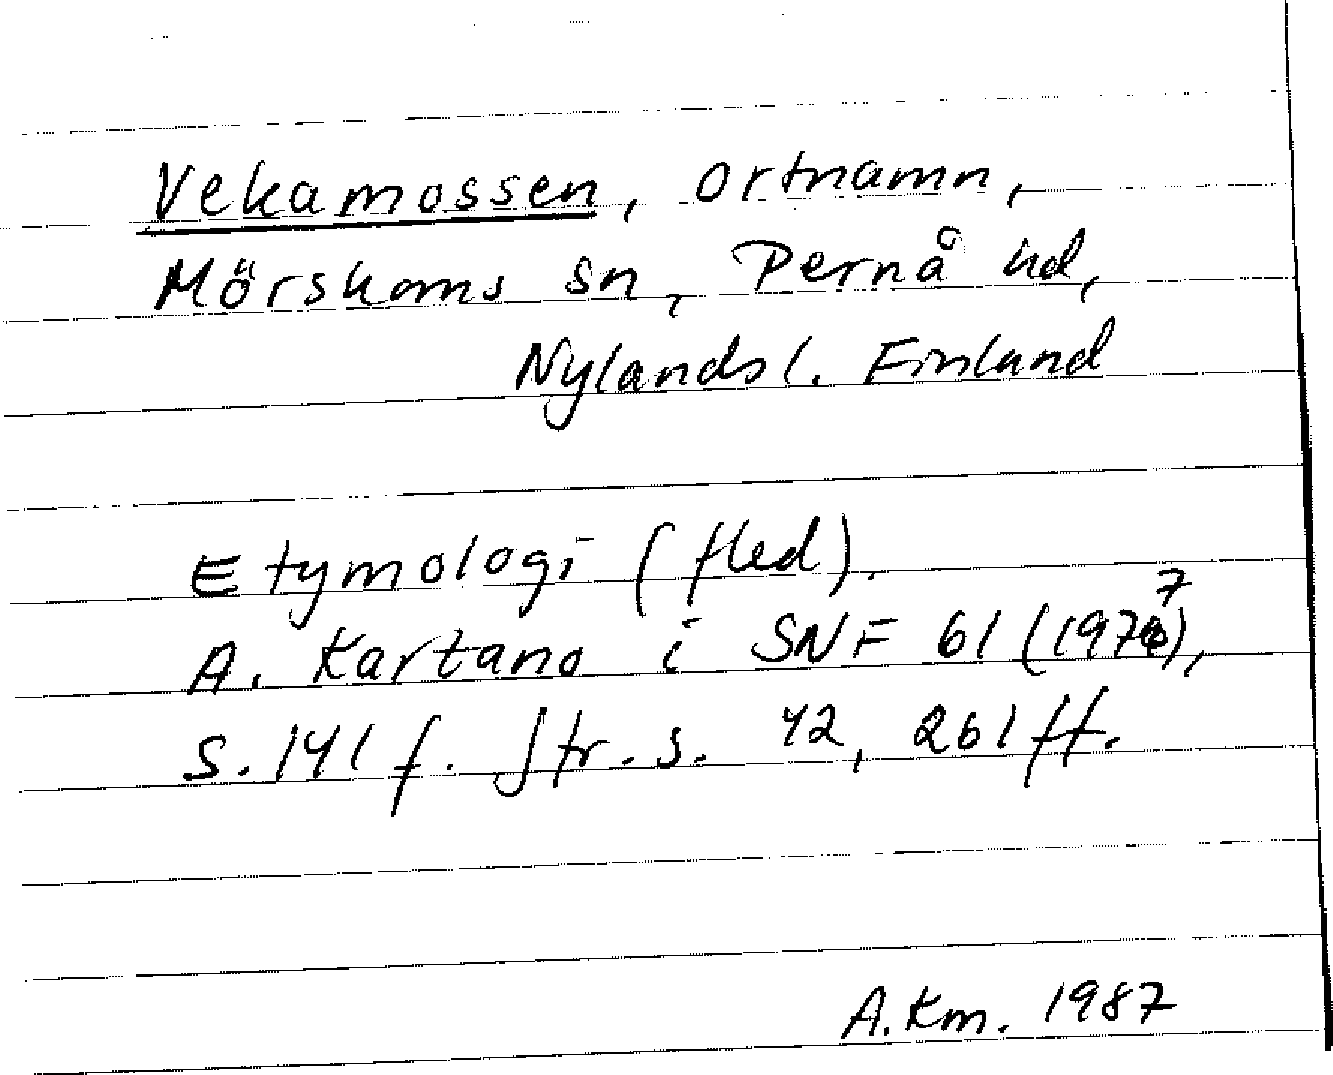 Vekamossen, ortnamn,
Mörskoms sn, Pernå hd,
Nylands l. Finland
Etymologi (fled).
A. Kartano i SNF 61 (1977),
S. 141 f. Jfr. s. 42, 261 ff.
A. Km. 1987